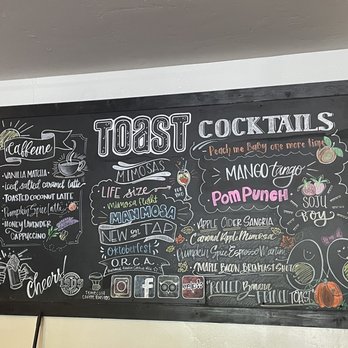 Caffeine
VANILLA MATCHA
iced salted caramel latte
TOASTED COCONUT LATTE
Pumpkin Spice Latte
HONEY LAVENDER
CAPPUCCINO
Cheers!
TOAST
MIMOSAS
LIFE Size
mimosa flight
MANMOSA
NEW on TAP
Oktoberfest
O.R.C.A.
COCKTAILS
Peach me Baby one more time
MANGO tango
POM PUNCH
SOJU
BOY
APPLE CIDER SANGRIA
Caramel Apple Mimosa
Pumpkin Spice Espresso Martini
MAPLE BACON BREAKFAST SHOT
TOAST